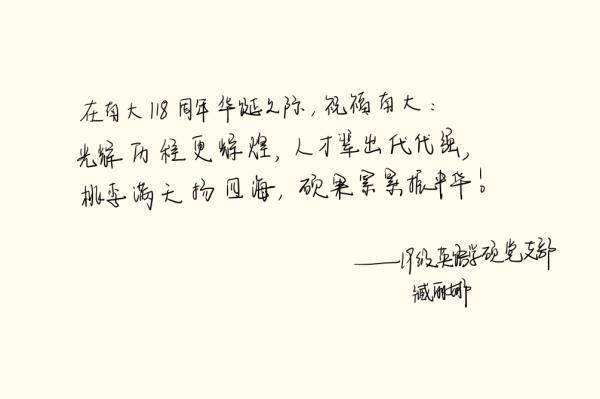 在南大118周年华诞之际,祝福南大:
光辉历程更辉煌,人才辈出代代强,
桃李满天扬四海,硕果累累振中华!
——19级英语学硕党支部
臧丽娜